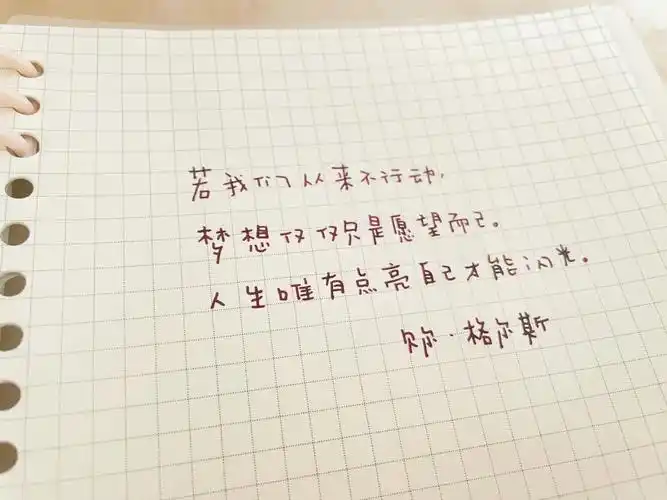 若我们从来不行动,
梦想仅仅只是愿望而已。
人生唯有点亮自己才能闪光。
贝尔·格尔斯